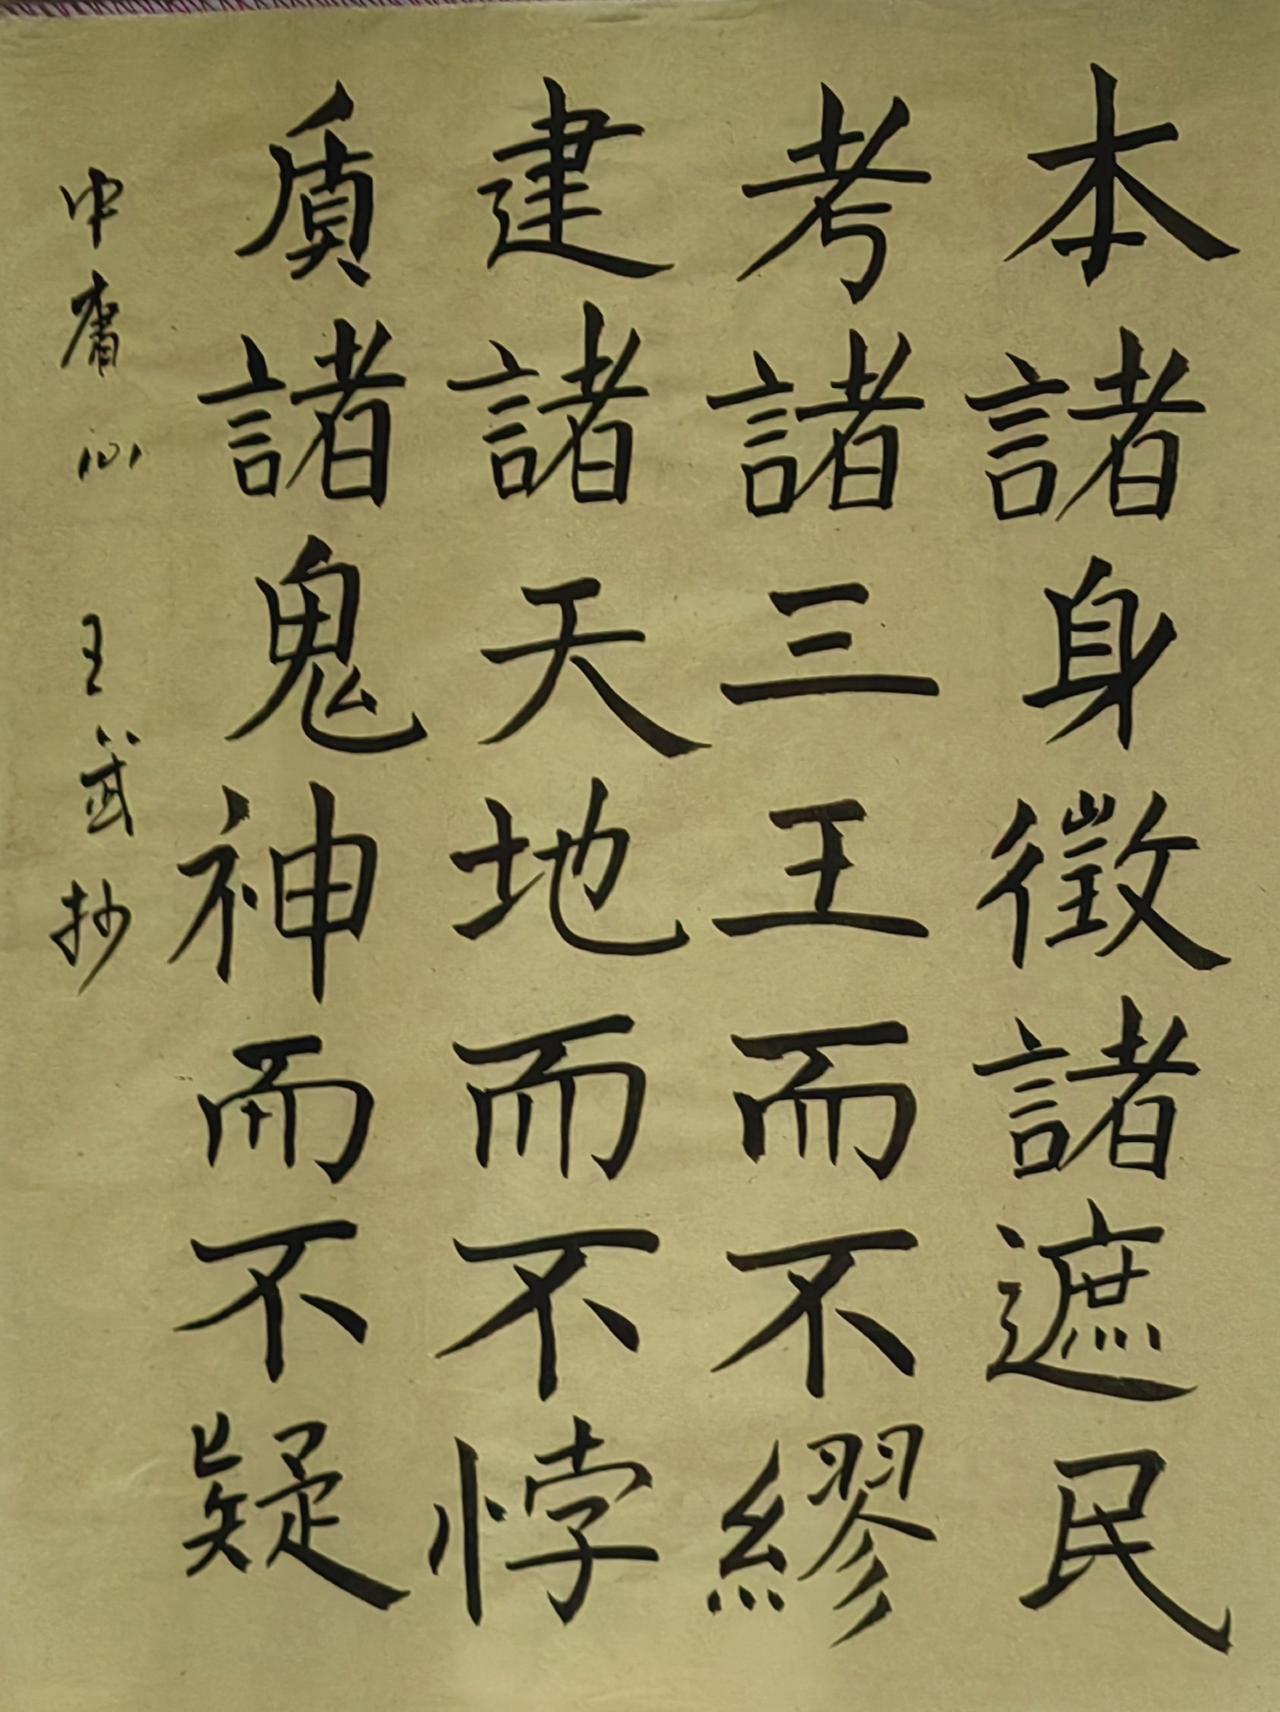 本諸身徵諸遮民
考諸三王而不繆
建諸天地而不悖
質諸鬼神而不疑
中庸 王武抄